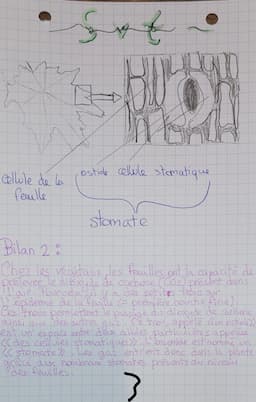 S v t
cellule de la
feuille
ostiole cellule stomatique
stomate
Bilan 2 :
Chez les végétaux, les feuilles ont la capacité de
prélever le dioxyde de carbone (CO2) présent dans
l'air.
l'épiderme de la feuille (= première couche fine).
Ces trous permettent le passage du dioxyde de carbone
ainsi que des autres gaz. Ce trou, appelé
est un espace entre deux cellules particulières appelées
<<des cellules stomatiques>>.
<<stomate>>. Les gaz entrent donc dans la plante
grâce aux nombreux stomates présents au niveau
des feuilles.
3